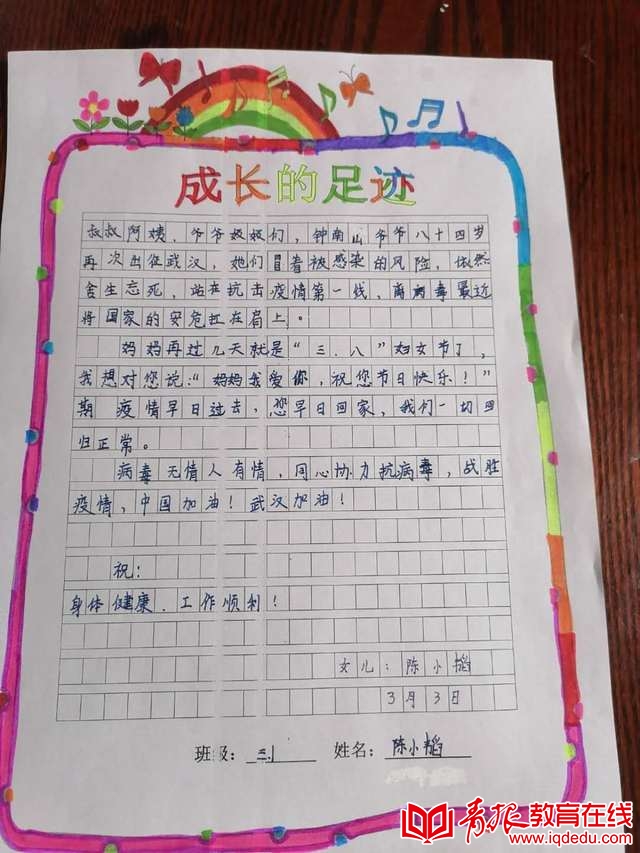 成长的足迹
叔叔阿姨、爷爷奶奶们,钟南山爷爷八十四岁
再次出征武汉,她们冒着被感染的风险,依然
舍生忘死,站在抗击疫情第一线,离病毒最近
将国家的安危扛在肩上。
妈妈再过几天就是“三.八”妇女节了,
我想对您说:“妈妈我爱你,祝您节日快乐!”
期 疫情早日过去,您早日回家,我们一切回
归正常。
病毒无情人有情,同心协力抗病毒,战胜
疫情,中国加油!武汉加油!
祝:
身体健康、工作顺利!
女儿:陈小韬
3月3日
班级: 三.1 姓名: 陈小韬
青报教育在线
www.iqdedu.com